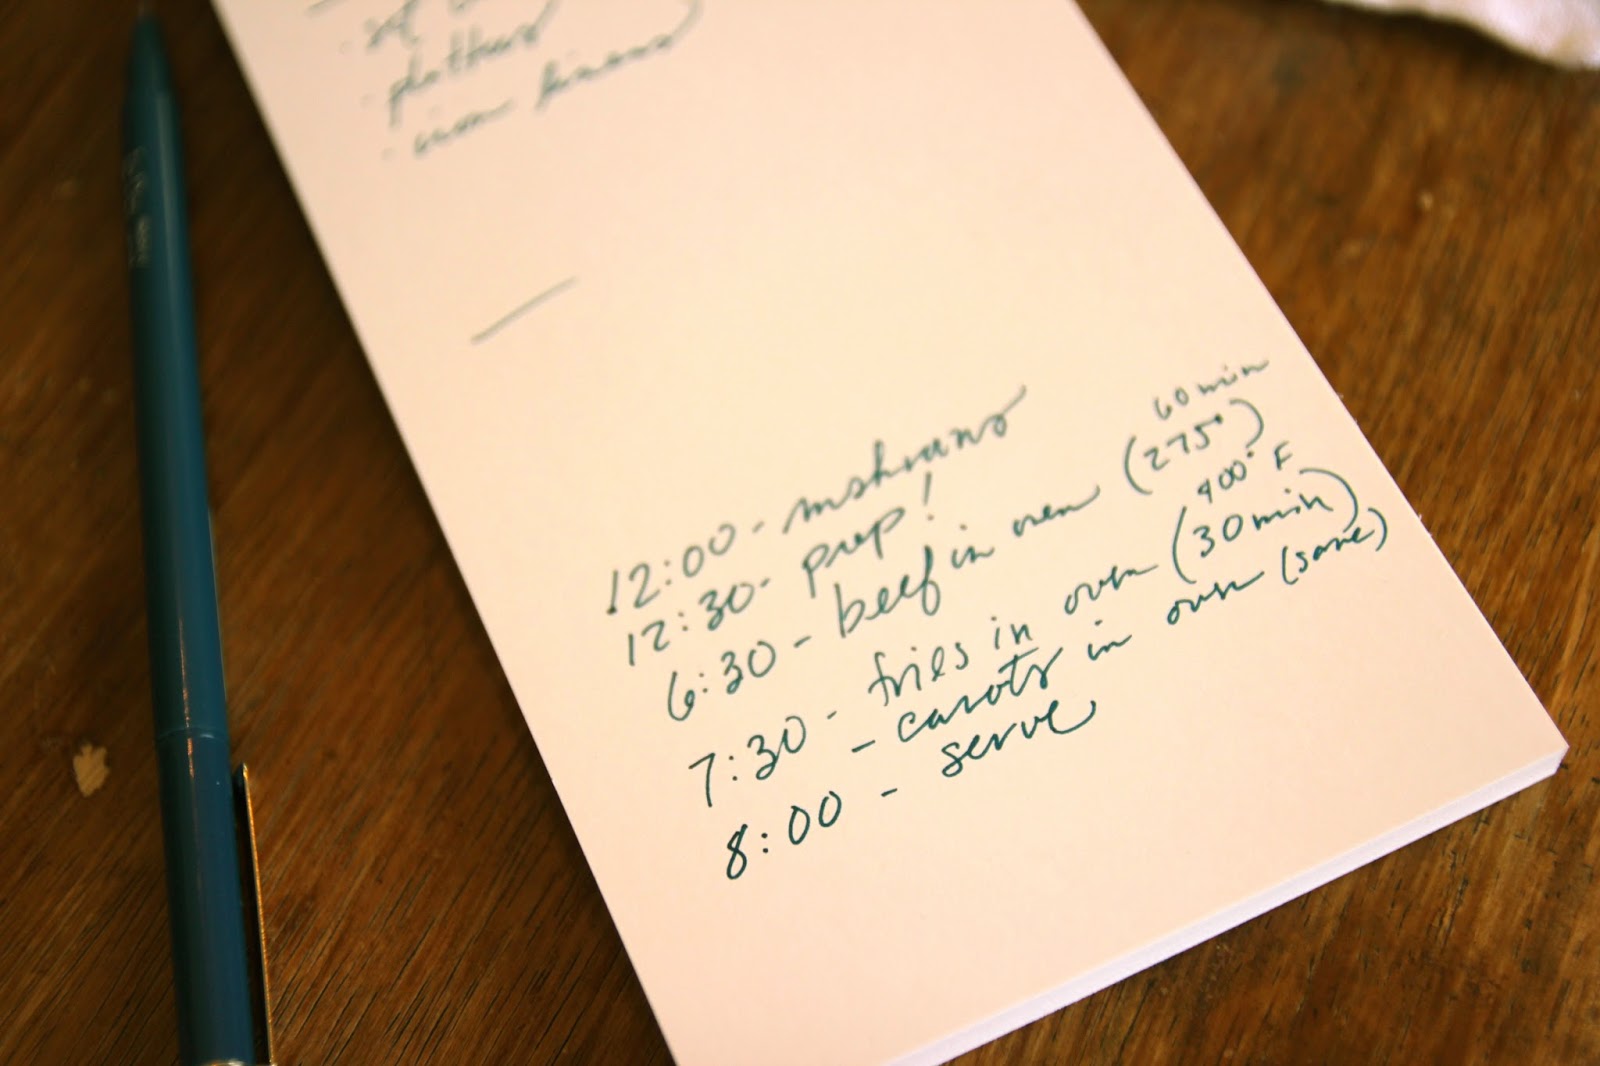 · set
· platters
· iron linens
12:00 - mshrums
12:30 - prep!
6:30 - beef in oven (275°) 60 min
7:30 - fries in oven (30 min) 400° F
- carots in oven (same)
8:00 - serve